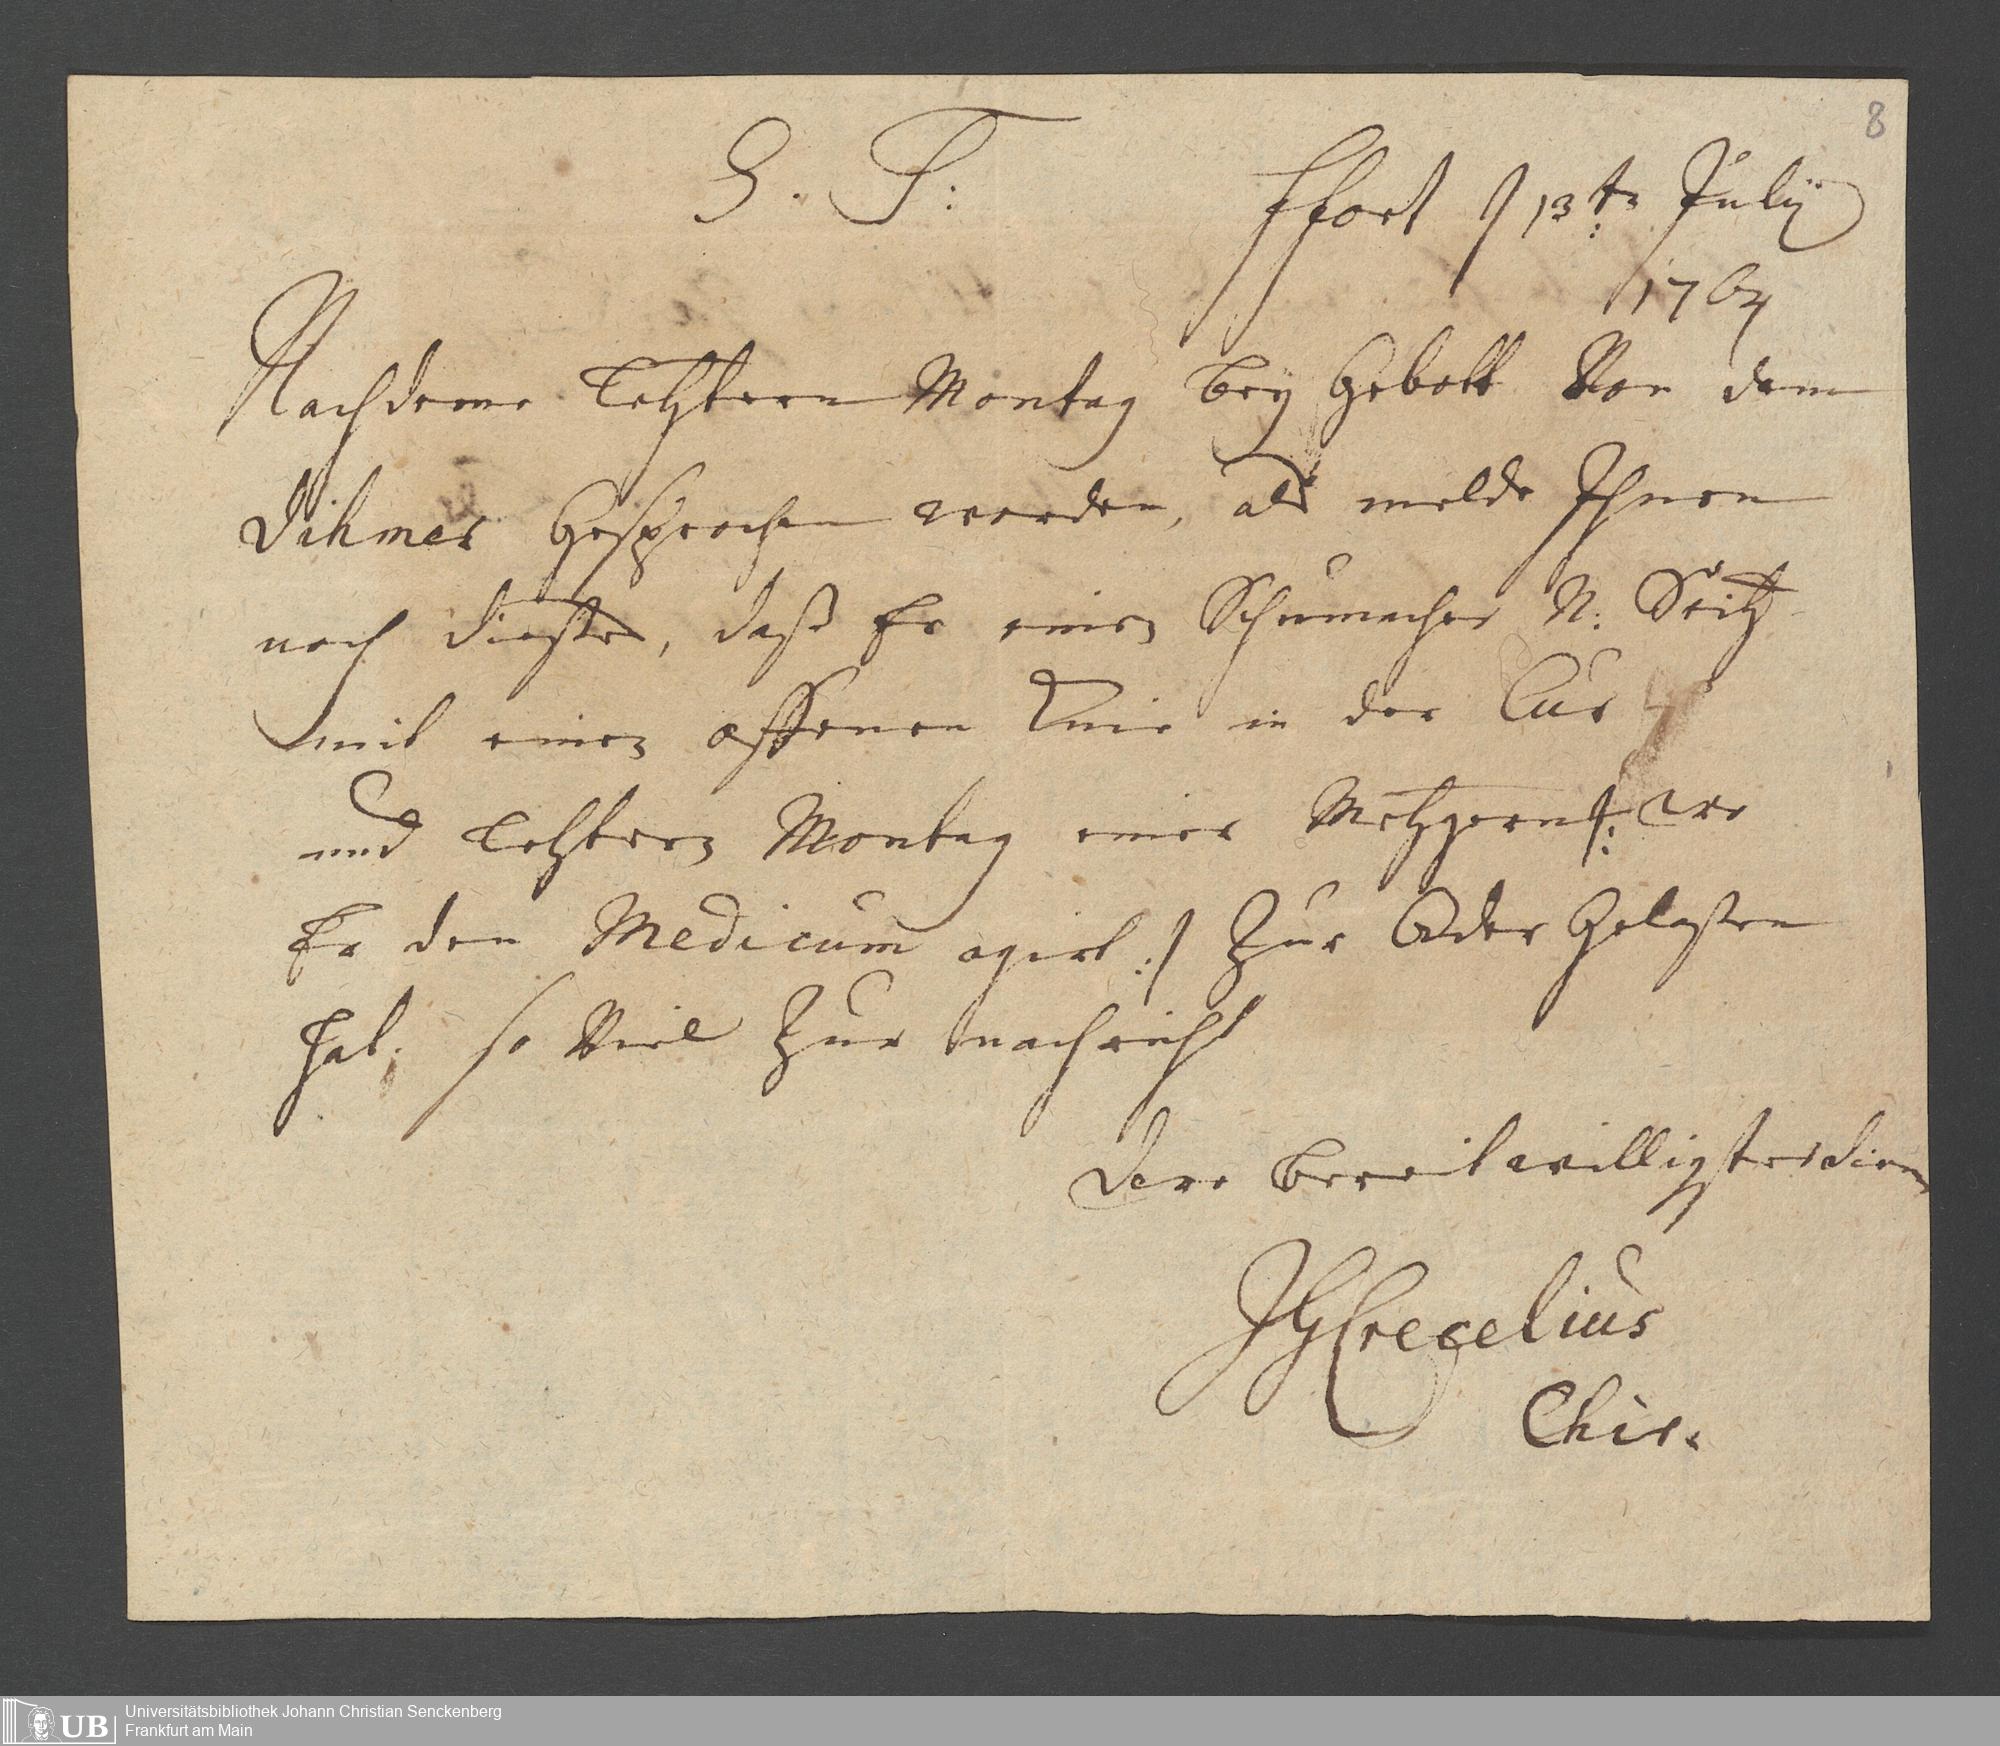 8
S. T:
ffort d 13ten July
1764
Nachdeme letztern Montag bey Gebott Von dem
Dihmer Gesprochen worden, als melde Ihnen
noch dießes, daß Er einen Schumacher N: Seitz
mit einen offenen Knie in der Cur
und letztern Montag einer Metzgern /: wo
Er den Medicum agirt :/ Zur Ader Gelaßen
hat. so Viel Zur nachricht
Dero bereitwilligster dien
JHCrecelius
Chir.
UB
Universitätsbibliothek Johann Christian Senckenberg
Frankfurt am Main